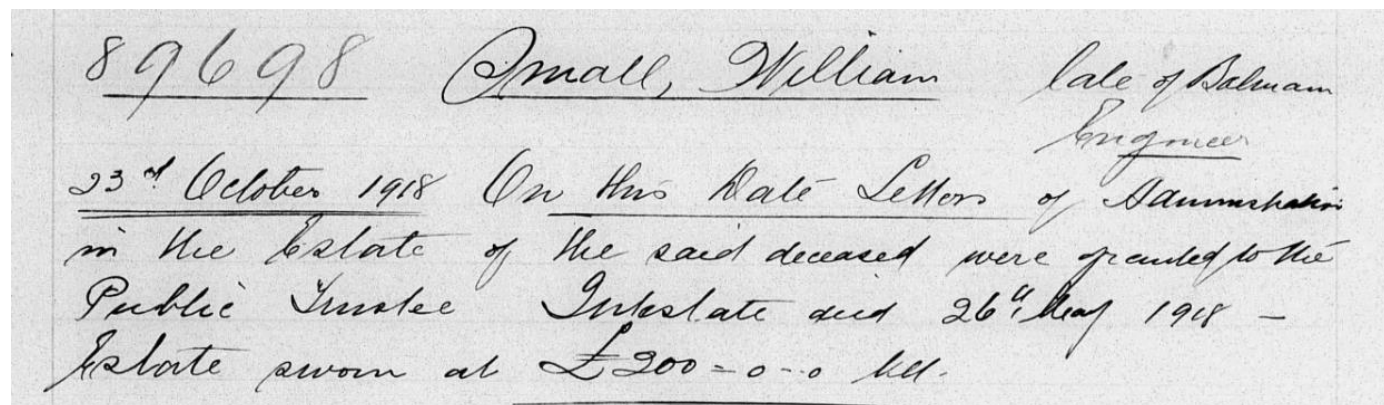 89698 Small, William late of Balmain
Engineer
23rd October 1918 On this Date Letters of Administration
in the Estate of the said deceased were granted to the
Public Trustee Intestate died 26th May 1918 –
Estate sworn at £200-0-0